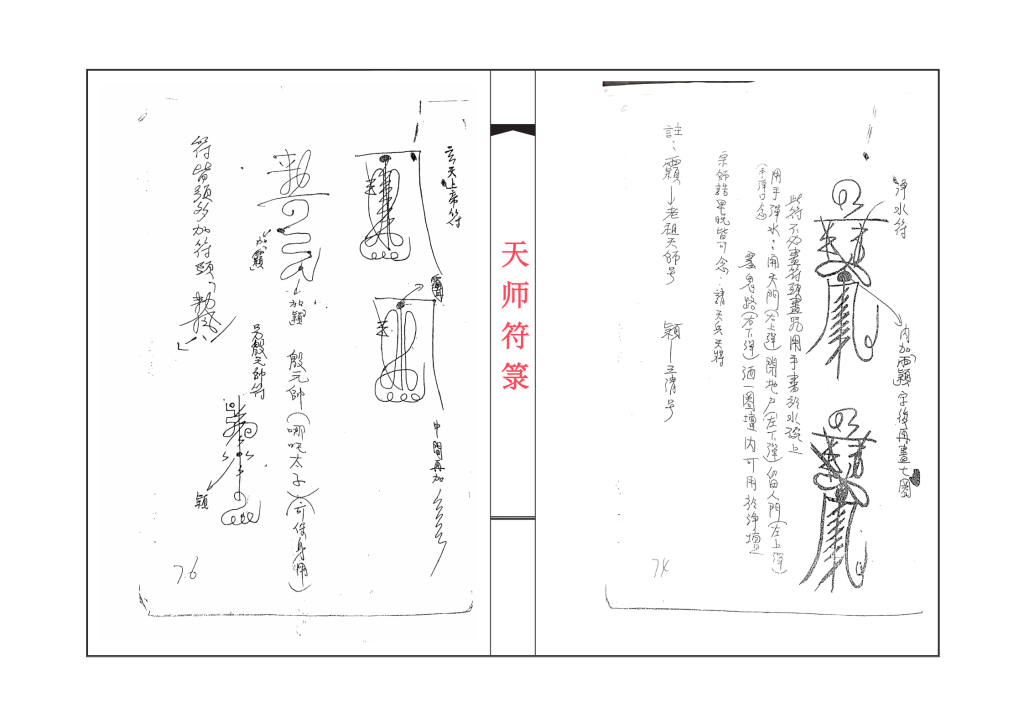 淨水符
內加靈頴字後再畫七圈
此符不必畫符頭畫咒用手畫於水碗上
用手彈水：開天門(右上彈)閉地戶(左下彈)留人門(左上彈)
(不彈只念)
塞鬼路(右下彈)洒一圈壇內可用於淨壇
宗師誥早晚皆可念，請天兵天將
註：靈頴→老祖天師号
頴—玉清号
74
天师符箓
玄天上帝符
中間再加
殷元帥(哪吒太子)(可保身用)
加頴
另殷元帥符
頴
符皆須多加符頭
76